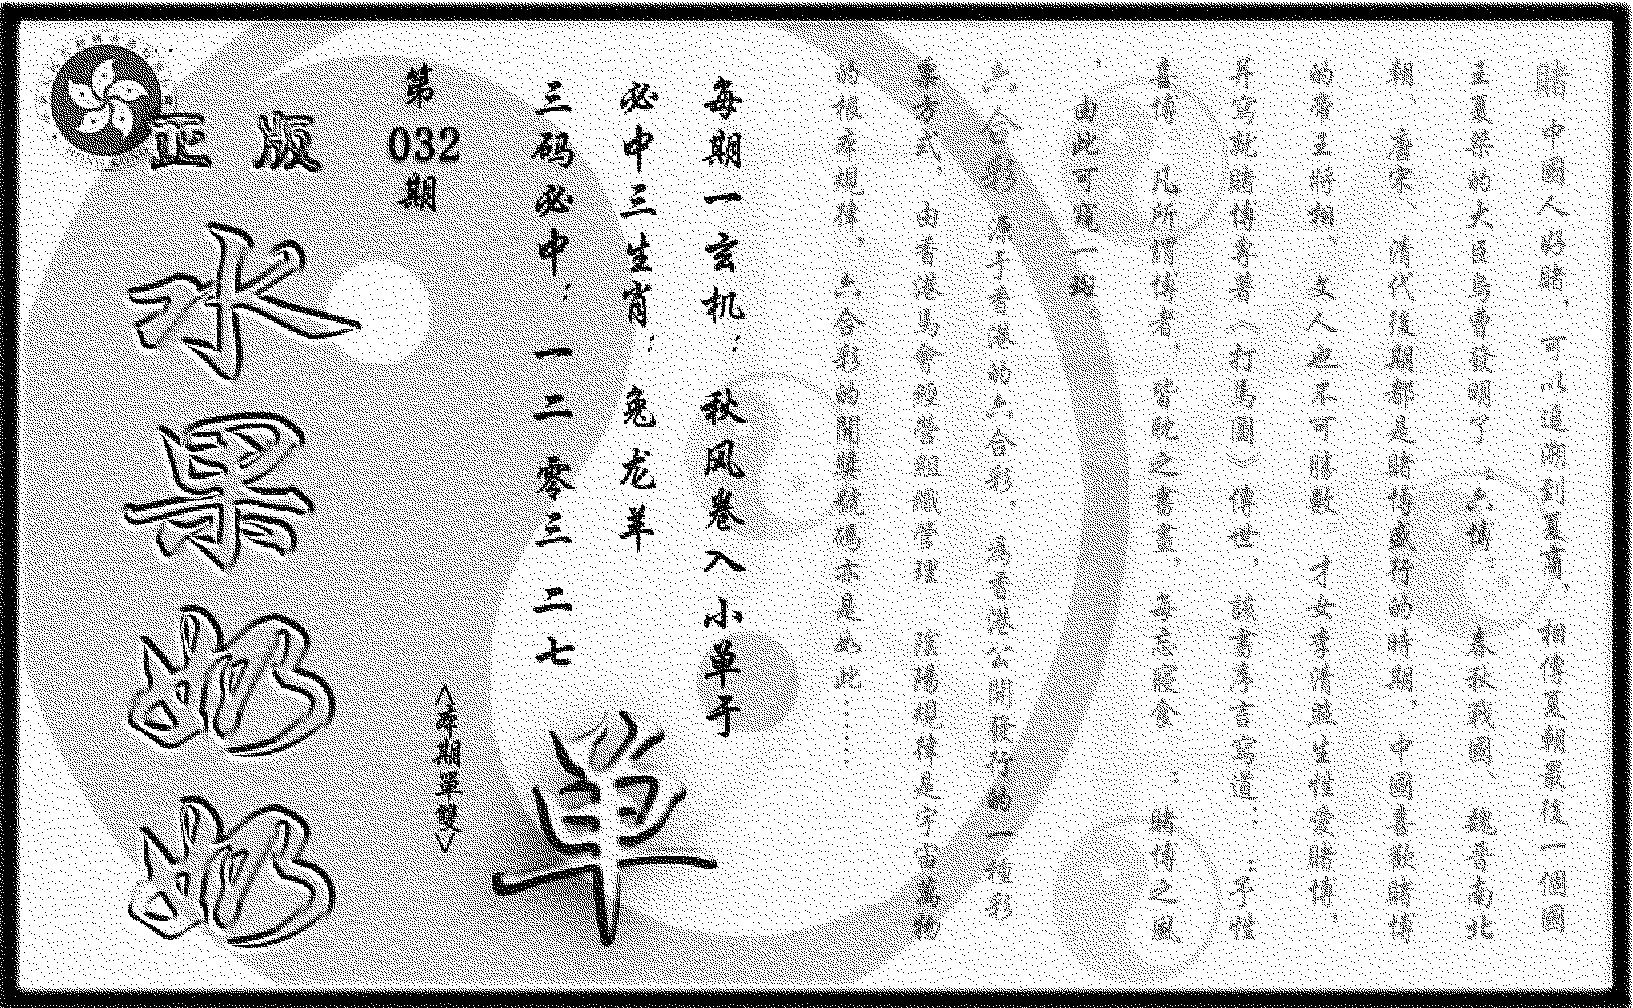 賭 中國人好賭，可以追溯到夏商，相傳夏朝最後一個國
王夏桀的大臣烏曹發明了“六博”。春秋戰國、魏晉南北
朝、唐宋、清代後期都是賭博盛行的時期。中國喜歡賭博
的帝王將相、文人也不可勝數。才女李清照生性愛賭博，
并寫就賭博專著〈打馬圖〉傳世，該書序言寫道：“予性
喜博，凡所謂博者，皆耽之書畫，每忘寢食”；賭博之風
，由此可窺一斑
六合彩 源于香港的六合彩，為香港公開發行的一種彩
票方式，由香港馬會經營組織管理 陰陽規律是宇宙萬物
的根本規律，六合彩的開獎號碼亦是如此……
每期一玄机：秋风卷入小单于
必中三生肖：兔龙羊
三码必中：一二 零三 二七
单
<本期單雙>
第032期
正版
水果奶奶